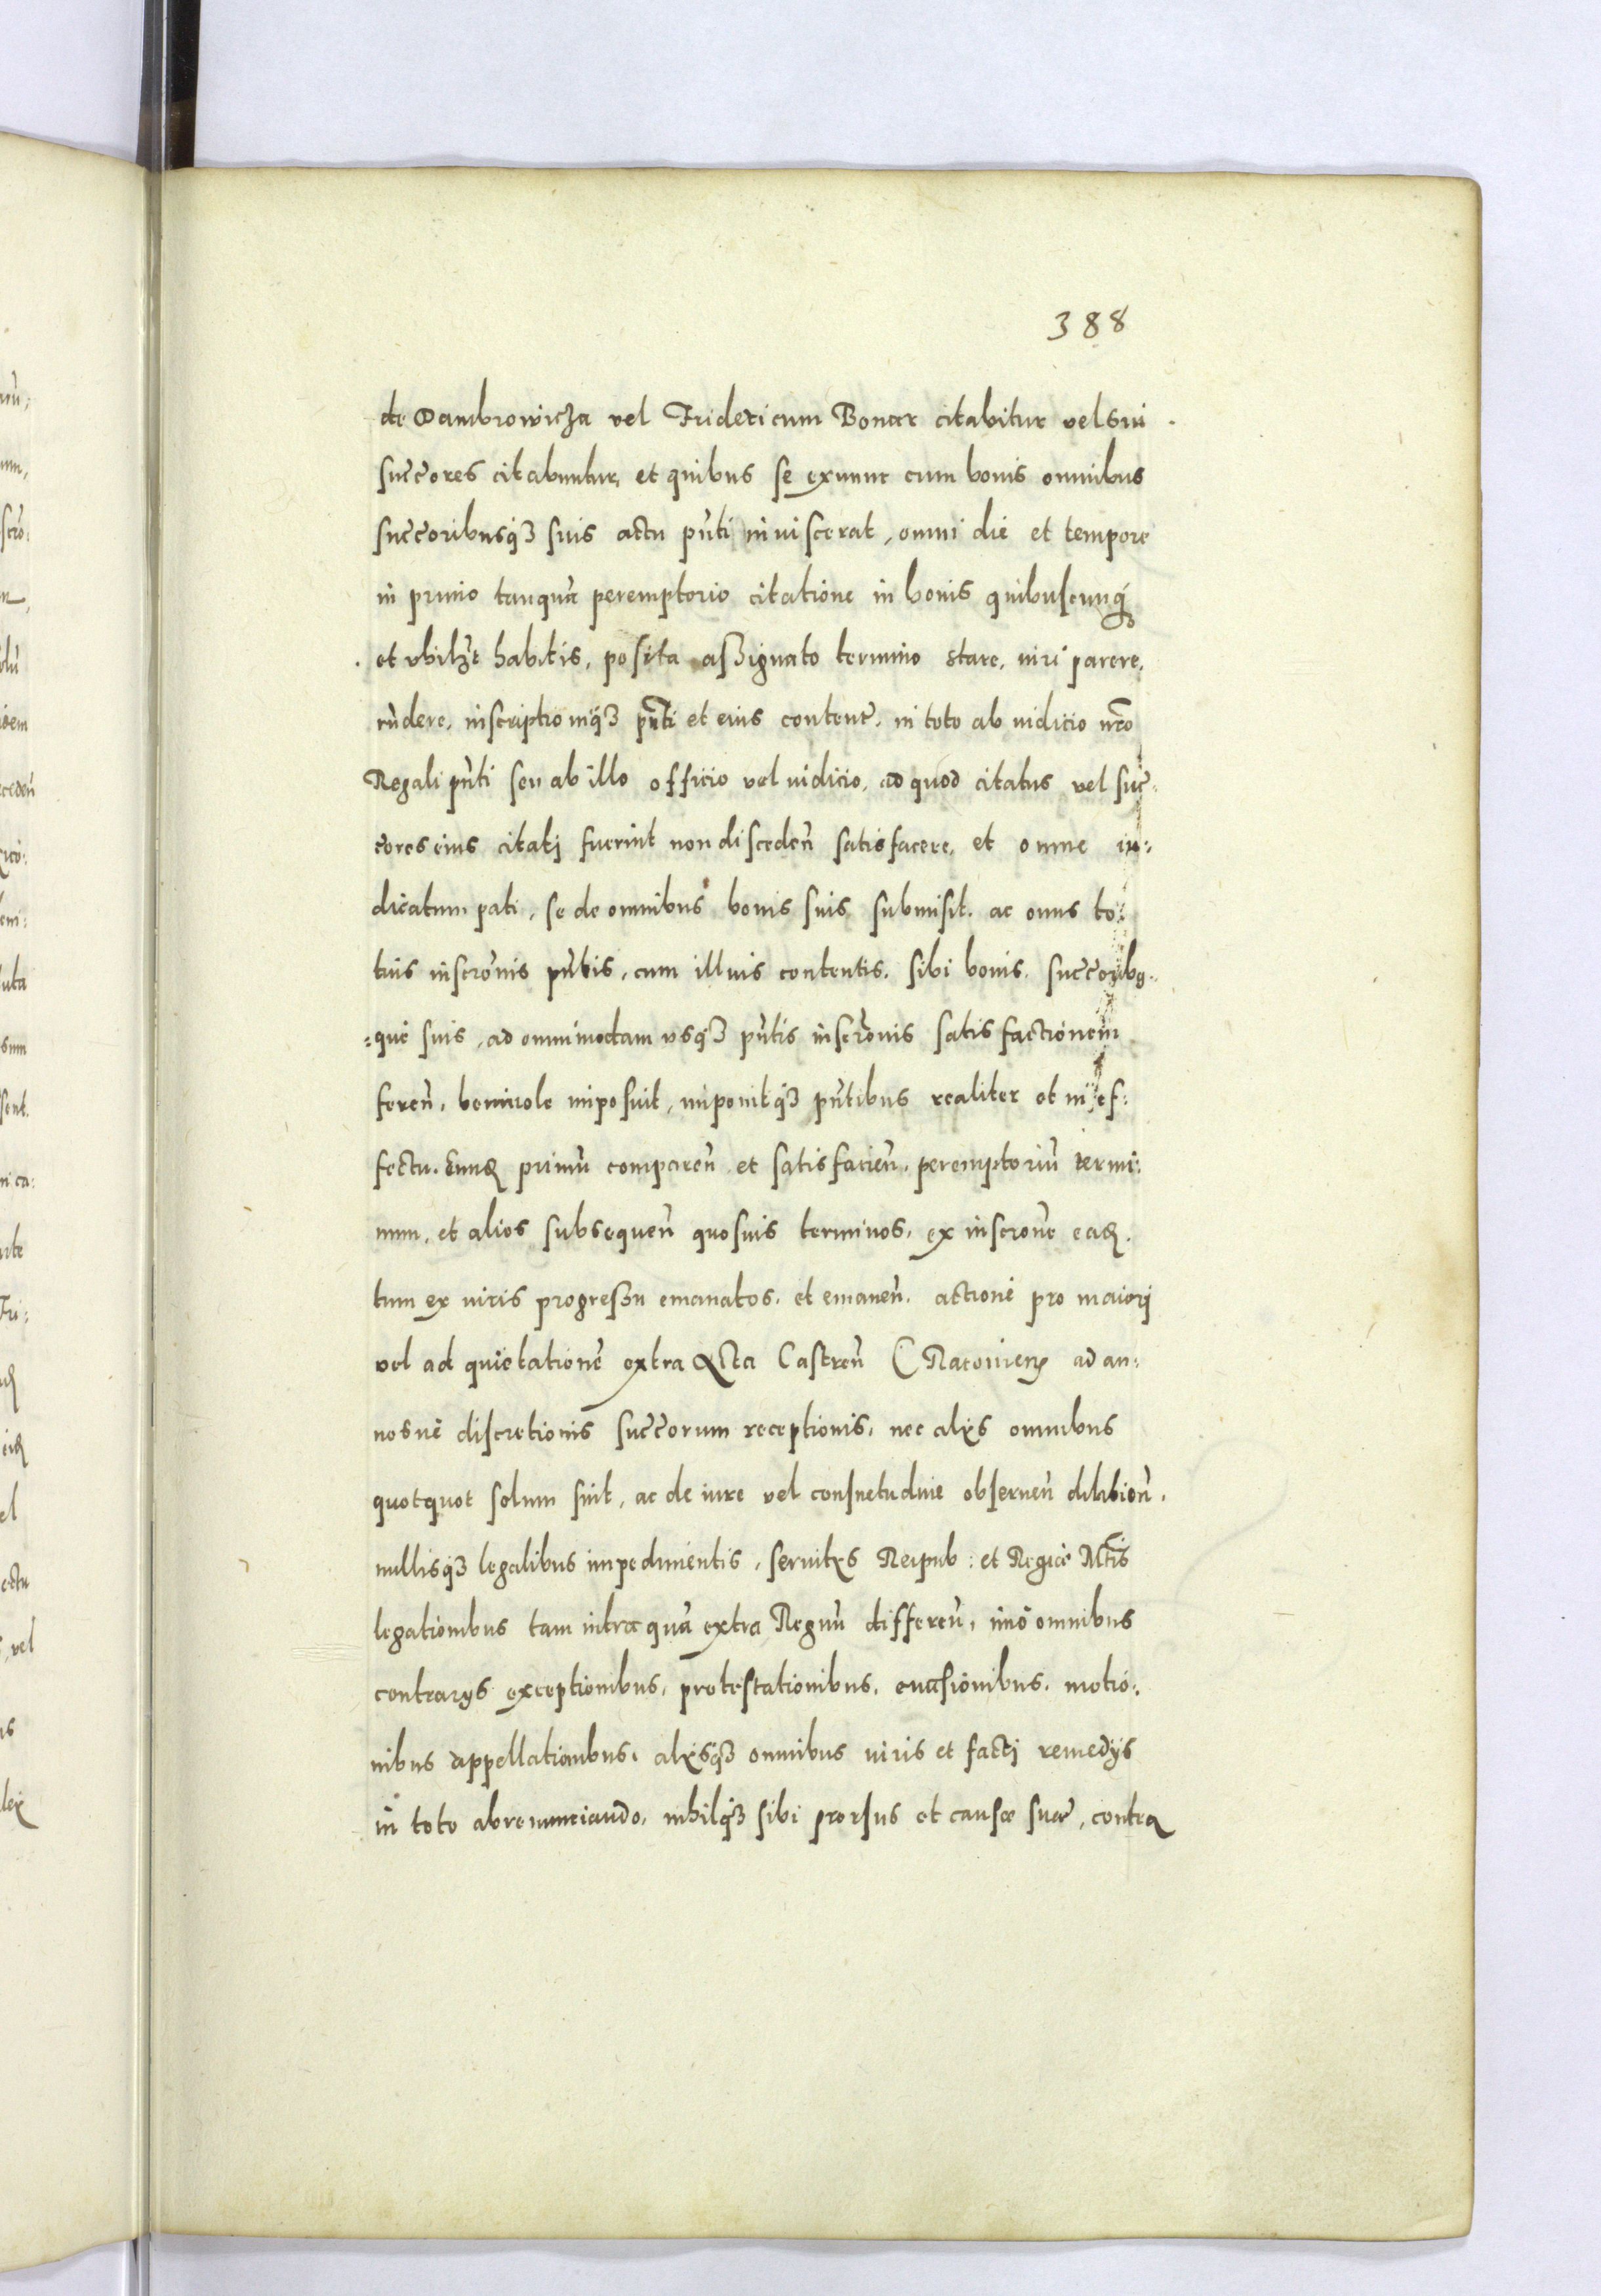 388
de Dambrowicza vel Fridericum Bonar citabitur vel sui
succ̃ores citabuntur, et quibus se exnunc cum bonis omnibus
succ̃oribusq₃ suis actu pñti inviscerat, omni die et tempore
in primo tanquã peremptorio citatione in bonis quibuscunq́
et ubilibet habitis, posita assignato termino stare, iuri parere,
rñdere, inscriptioniq₃ pñti et eius content̃. in toto ab iudicio nr̃o
Regali pñti seu ab illo officio vel iudicio, ad quod citatus vel suc̃-
c̃ores eius citati fuerint non disceden̄ satisfacere, et omne iu-
dicatum pati, se de omnibus bonis suis submisit. ac onus to-
tius inscr̃onis pñtis, cum illius contentis, sibi bonis, succ̃orib9-
-que suis, ad omnimodam usq₃ pñtis inscr̃onis satisfactionem
feren̄, benivole imposuit, imponitq₃ pñtibus realiter et in ef-
fectu. Eundẽ primũ comparen̄ et satisfacien̄, peremptoriũ termi-
num, et alios subsequen̄ quosvis terminos, ex inscr̃one eadẽ.
tum ex iuris progressu emanatos, et emanen̄. actione pro maiori
vel ad quietationẽ extra Acta Castren̄ Cracovien̄ ad an-
nosve discretionis succ̃orum receptionis, nec alijs omnibus
quotquot solum sint, ac de iure vel consuetudine observen̄ dilation̄.
nullisq₃ legalibus impedimentis, servitijs Reipub: et Regiæ Mt̃is
legationibus tam intra quã extra Regnũ differen̄, imo omnibus
contrarijs exceptionibus, protestationibus, evasionibus, motio-
nibus appellationibus, alijsq₃ omnibus iuris et facti remedijs
in toto abrenunciando, nihilq₃ sibi prorsus et causæ suæ, contra